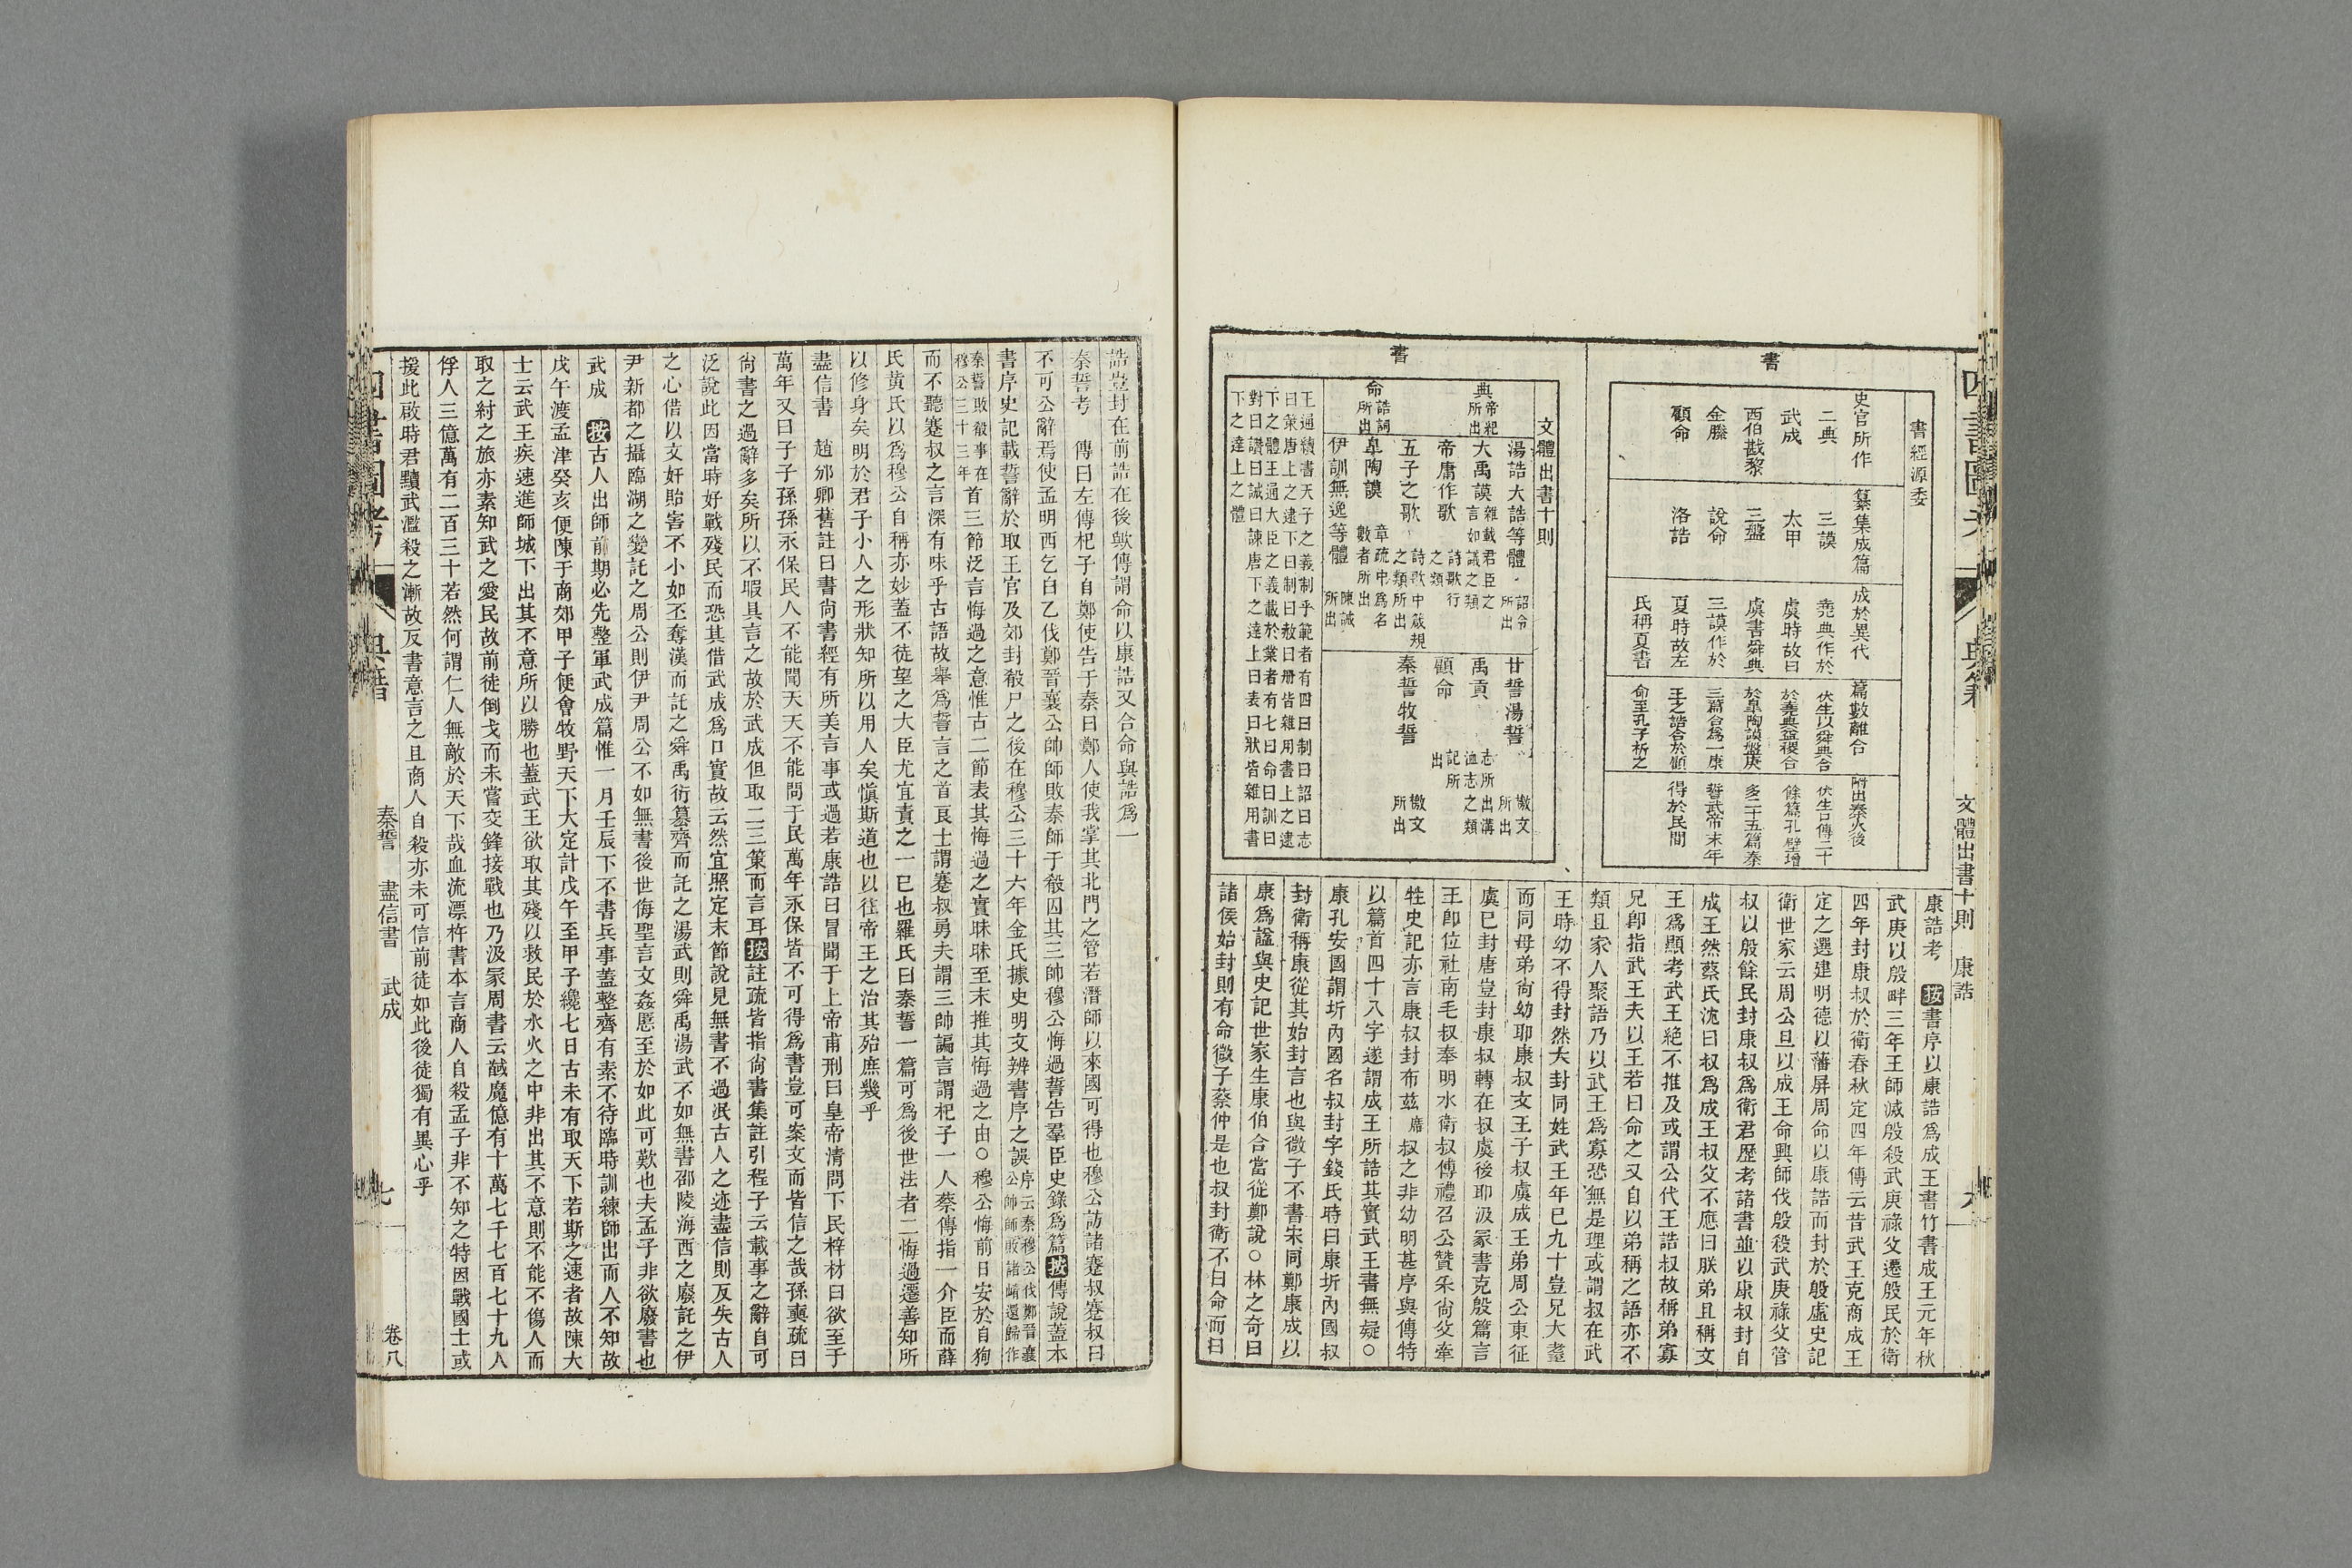 四書圖考
典籍
文體出書十則 康誥
書
書經源委
史官所作 纂集成篇 成於異代 篇數離合 附出秦火後
二典 三謨 堯典作於 伏生以舜典合 伏生口傳二十
武成 太甲 虞時故曰 於堯典益稷合 餘篇孔壁增
西伯戡黎 三盤 虞書舜典 於臯陶謨盤庚 多二十五篇泰
金縢 說命 三謨作於 三篇合爲一康 誓武帝末年
顧命 洛誥 夏時故左 王之誥合於顧 得於民間
氏稱夏書 命至孔子析之
書
文體出書十則
典 帝紀所出
命 誥詞所出
湯誥大誥等體 詔令所出
大禹謨 雜載君臣之言如議之類
帝庸作歌 詩歌行之類
五子之歌 詩歌中箴規之類所出
臯陶謨 章疏中爲名數者所出
伊訓無逸等體 陳誡所出
甘誓湯誓 檄文所出
禹貢 志所出溝洫志之類
顧命 記所出
秦誓牧誓 檄文所出
王通續書天子之義制乎範者有四曰制曰詔曰志
曰策唐上之逮下曰制曰敕曰册皆雜用書上之逮
下之體王通大臣之義載於業者有七曰命曰訓曰
對曰讚曰誡曰諫唐下之達上曰表曰狀皆雜用書
下之達上之體
康誥考 按書序以康誥爲成王書竹書成王元年秋
武庚以殷畔三年王師滅殷殺武庚祿父遷殷民於衛
四年封康叔於衛春秋定四年傳云昔武王克商成王
定之選建明德以藩屏周命以康誥而封於殷虛史記
衛世家云周公旦以成王命興師伐殷殺武庚祿父管
叔以殷餘民封康叔爲衛君歷考諸書並以康叔封自
成王然蔡氏沈曰叔爲成王叔父不應曰朕弟且稱文
王爲顯考武王絕不推及或謂公代王誥叔故稱弟寡
兄卽指武王夫以王若曰命之又自以弟稱之語亦不
類且家人聚語乃以武王爲寡恐無是理或謂叔在武
王時幼不得封然大封同姓武王年已九十豈兄大耋
而同母弟尙幼耶康叔文王子叔虞成王弟周公東征
虞已封唐豈封康叔轉在叔虞後耶汲冢書克殷篇言
王卽位社南毛叔奉明水衛叔傅禮召公贊采尙父牽
牲史記亦言康叔封布茲席叔之非幼明甚序與傳特
以篇首四十八字遂謂成王所誥其實武王書無疑○
康孔安國謂圻內國名叔封字錢氏時曰康圻內國叔
封衛稱康從其始封言也與微子不書宋同鄭康成以
康爲謚與史記世家生康伯合當從鄭說○林之奇曰
諸侯始封則有命微子蔡仲是也叔封衛不曰命而曰
誥豈封在前誥在後歟傳謂命以康誥又合命與誥爲一
秦誓考 傳曰左傳杞子自鄭使告于秦曰鄭人使我掌其北門之管若潛師以來國可得也穆公訪諸蹇叔蹇叔曰
不可公辭焉使孟明西乞白乙伐鄭晉襄公帥師敗秦師于殽囚其三帥穆公悔過誓告羣臣史錄爲篇按傳說蓋本
書序史記載誓辭於取王官及郊封殽尸之後在穆公三十六年金氏據史明文辨書序之誤序云秦穆公伐鄭晉襄公帥師敗諸崤還歸作
秦誓敗殽事在穆公三十三年首三節泛言悔過之意惟古二節表其悔過之實昧昧至末推其悔過之由○穆公悔前日安於自狥
而不聽蹇叔之言深有味乎古語故舉爲誓言之首艮士謂蹇叔勇夫謂三帥諞言謂杞子一人蔡傳指一介臣而薛
氏黄氏以爲穆公自稱亦妙蓋不徒望之大臣尤宜責之一已也羅氏曰秦誓一篇可爲後世法者二悔過遷善知所
以修身矣明於君子小人之形狀知所以用人矣愼斯道也以往帝王之治其殆庶幾乎
盡信書 趙邠卿舊註曰書尙書經有所美言事或過若康誥曰冒聞于上帝甫刑曰皇帝清問下民梓材曰欲至于
萬年又曰子子孫孫永保民人不能聞天天不能問于民萬年永保皆不可得爲書豈可案文而皆信之哉孫奭疏曰
尙書之過辭多矣所以不暇具言之故於武成但取二三策而言耳按註疏皆指尙書集註引程子云載事之辭自可
泛說此因當時好戰殘民而恐其借武成爲口實故云然宜照定末節說見無書不過泯古人之迹盡信則反失古人
之心借以文奸貽害不小如丕奪漢而託之舜禹衍簒齊而託之湯武則舜禹湯武不如無書邵陵海西之廢託之伊
尹新都之攝臨湖之變託之周公則伊尹周公不如無書後世侮聖言文姦慝至於如此可歎也夫孟子非欲廢書也
武成 按古人出師前期必先整軍武成篇惟一月壬辰下不書兵事蓋整齊有素不待臨時訓練師出而人不知故
戊午渡孟津癸亥便陳于商郊甲子便會牧野天下大定計戊午至甲子纔七日古未有取天下若斯之速者故陳大
士云武王疾速進師城下出其不意所以勝也蓋武王欲取其殘以救民於水火之中非出其不意則不能不傷人而
取之紂之旅亦素知武之愛民故前徒倒戈而未嘗交鋒接戰也乃汲冢周書云馘魔億有十萬七千七百七十九人
俘人三億萬有二百三十若然何謂仁人無敵於天下哉血流漂杵書本言商人自殺孟子非不知之特因戰國士或
援此啟時君黷武濫殺之漸故反書意言之且商人自殺亦未可信前徒如此後徒獨有異心乎
四書圖考
典籍
秦誓 盡信書 武成
七
卷八